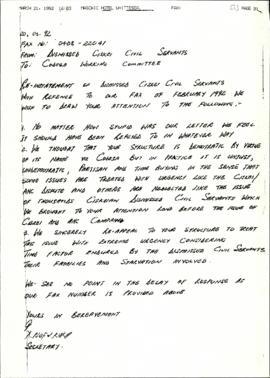 MARCH 21, 1992 16:03 MASONIC HOTEL WHITTLESEA FAX PAGE 01
20.03.92
FAX NO: 0408-22041
FROM: DISMISSED CISKEI CIVIL SERVANTS
TO: CODESA WORKING COMMITTEE
RE-INSTATEMENT OF DISMISSED CISKEI CIVIL SERVANTS
WITH REFENCE TO OUR FAX OF FEBRUARY 1992 WE
WISH TO DRAW YOUR ATTENTION TO THE FOLLOWING:-
1. NO MATTER HOW STUPID WAS OUR LETTER WE FEEL
IT SHOULD HAVE BEEN REPLIED TO IN WHATEVER WAY
2. WE THOUGHT THAT YOUR STRUCTURE IS DEMOCRATIC BY VIRTUE
OF ITS NAME IE CODESA BUT IN PRACTICE IT IS UNJUST,
UNDEMOCRATIC, PARTISAN AND TIME BUYING IN THE SENSE THAT
SOME ISSUES ARE TREATED WITH URGENCY LIKE THE CISKEI/
ANC DISPUTE AND OTHERS ARE NEGLECTED LIKE THE ISSUE
OF THOUSANDS CISKEIAN DISMISSED CIVIL SERVANTS WHICH
WE BROUGHT TO YOUR ATTENTION LONG BEFORE THE ISSUE OF
CISKEI AND ANC CAMPAIGN
3. WE SINCERELY RE-APPEAL TO YOUR STRUCTURE TO TREAT
THE ISSUE WITH EXTREME URGENCY CONSIDERING
TIME FACTOR ENDURED BY THE DISMISSED CIVIL SERVANTS,
THEIR FAMILIES AND STARVATION INVOLVED.
WE SEE NO POINT IN THE DELAY OF RESPONSE AS
OUR FAX NUMBER IS PROVIDED ABOVE
YOURS IN BEREAVEMENT
SECRETARY.